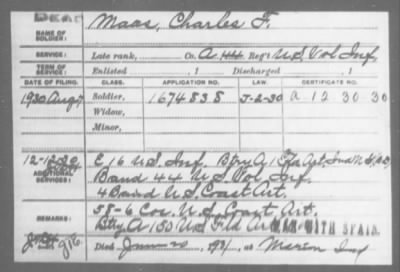 DEAD
NAME OF SOLDIER: Maas, Charles F.
SERVICE: Late rank, Co. A 44 Reg't U.S. Vol Inf.
TERM OF SERVICE: Enlisted , 1 Discharged , 1
DATE OF FILING. CLASS. APPLICATION NO. LAW. CERTIFICATE NO.
1930 Aug 7 Soldier, 1674838 J-2-30 a 12 30 30
Widow,
Minor,
12-12-30
ADDITIONAL SERVICES: E, 16 U.S. Inf. Btry A, 1 Fld Art, Ind N.G.
Band 44 U.S. Vol Inf.
4 Band U.S. Coast Art.
REMARKS: 58-6 Cos. U.S. Coast Art.
Btry A 150 U.S. Fld Art WAR WITH SPAIN.
Died June 20, 1931, at Marion Ind